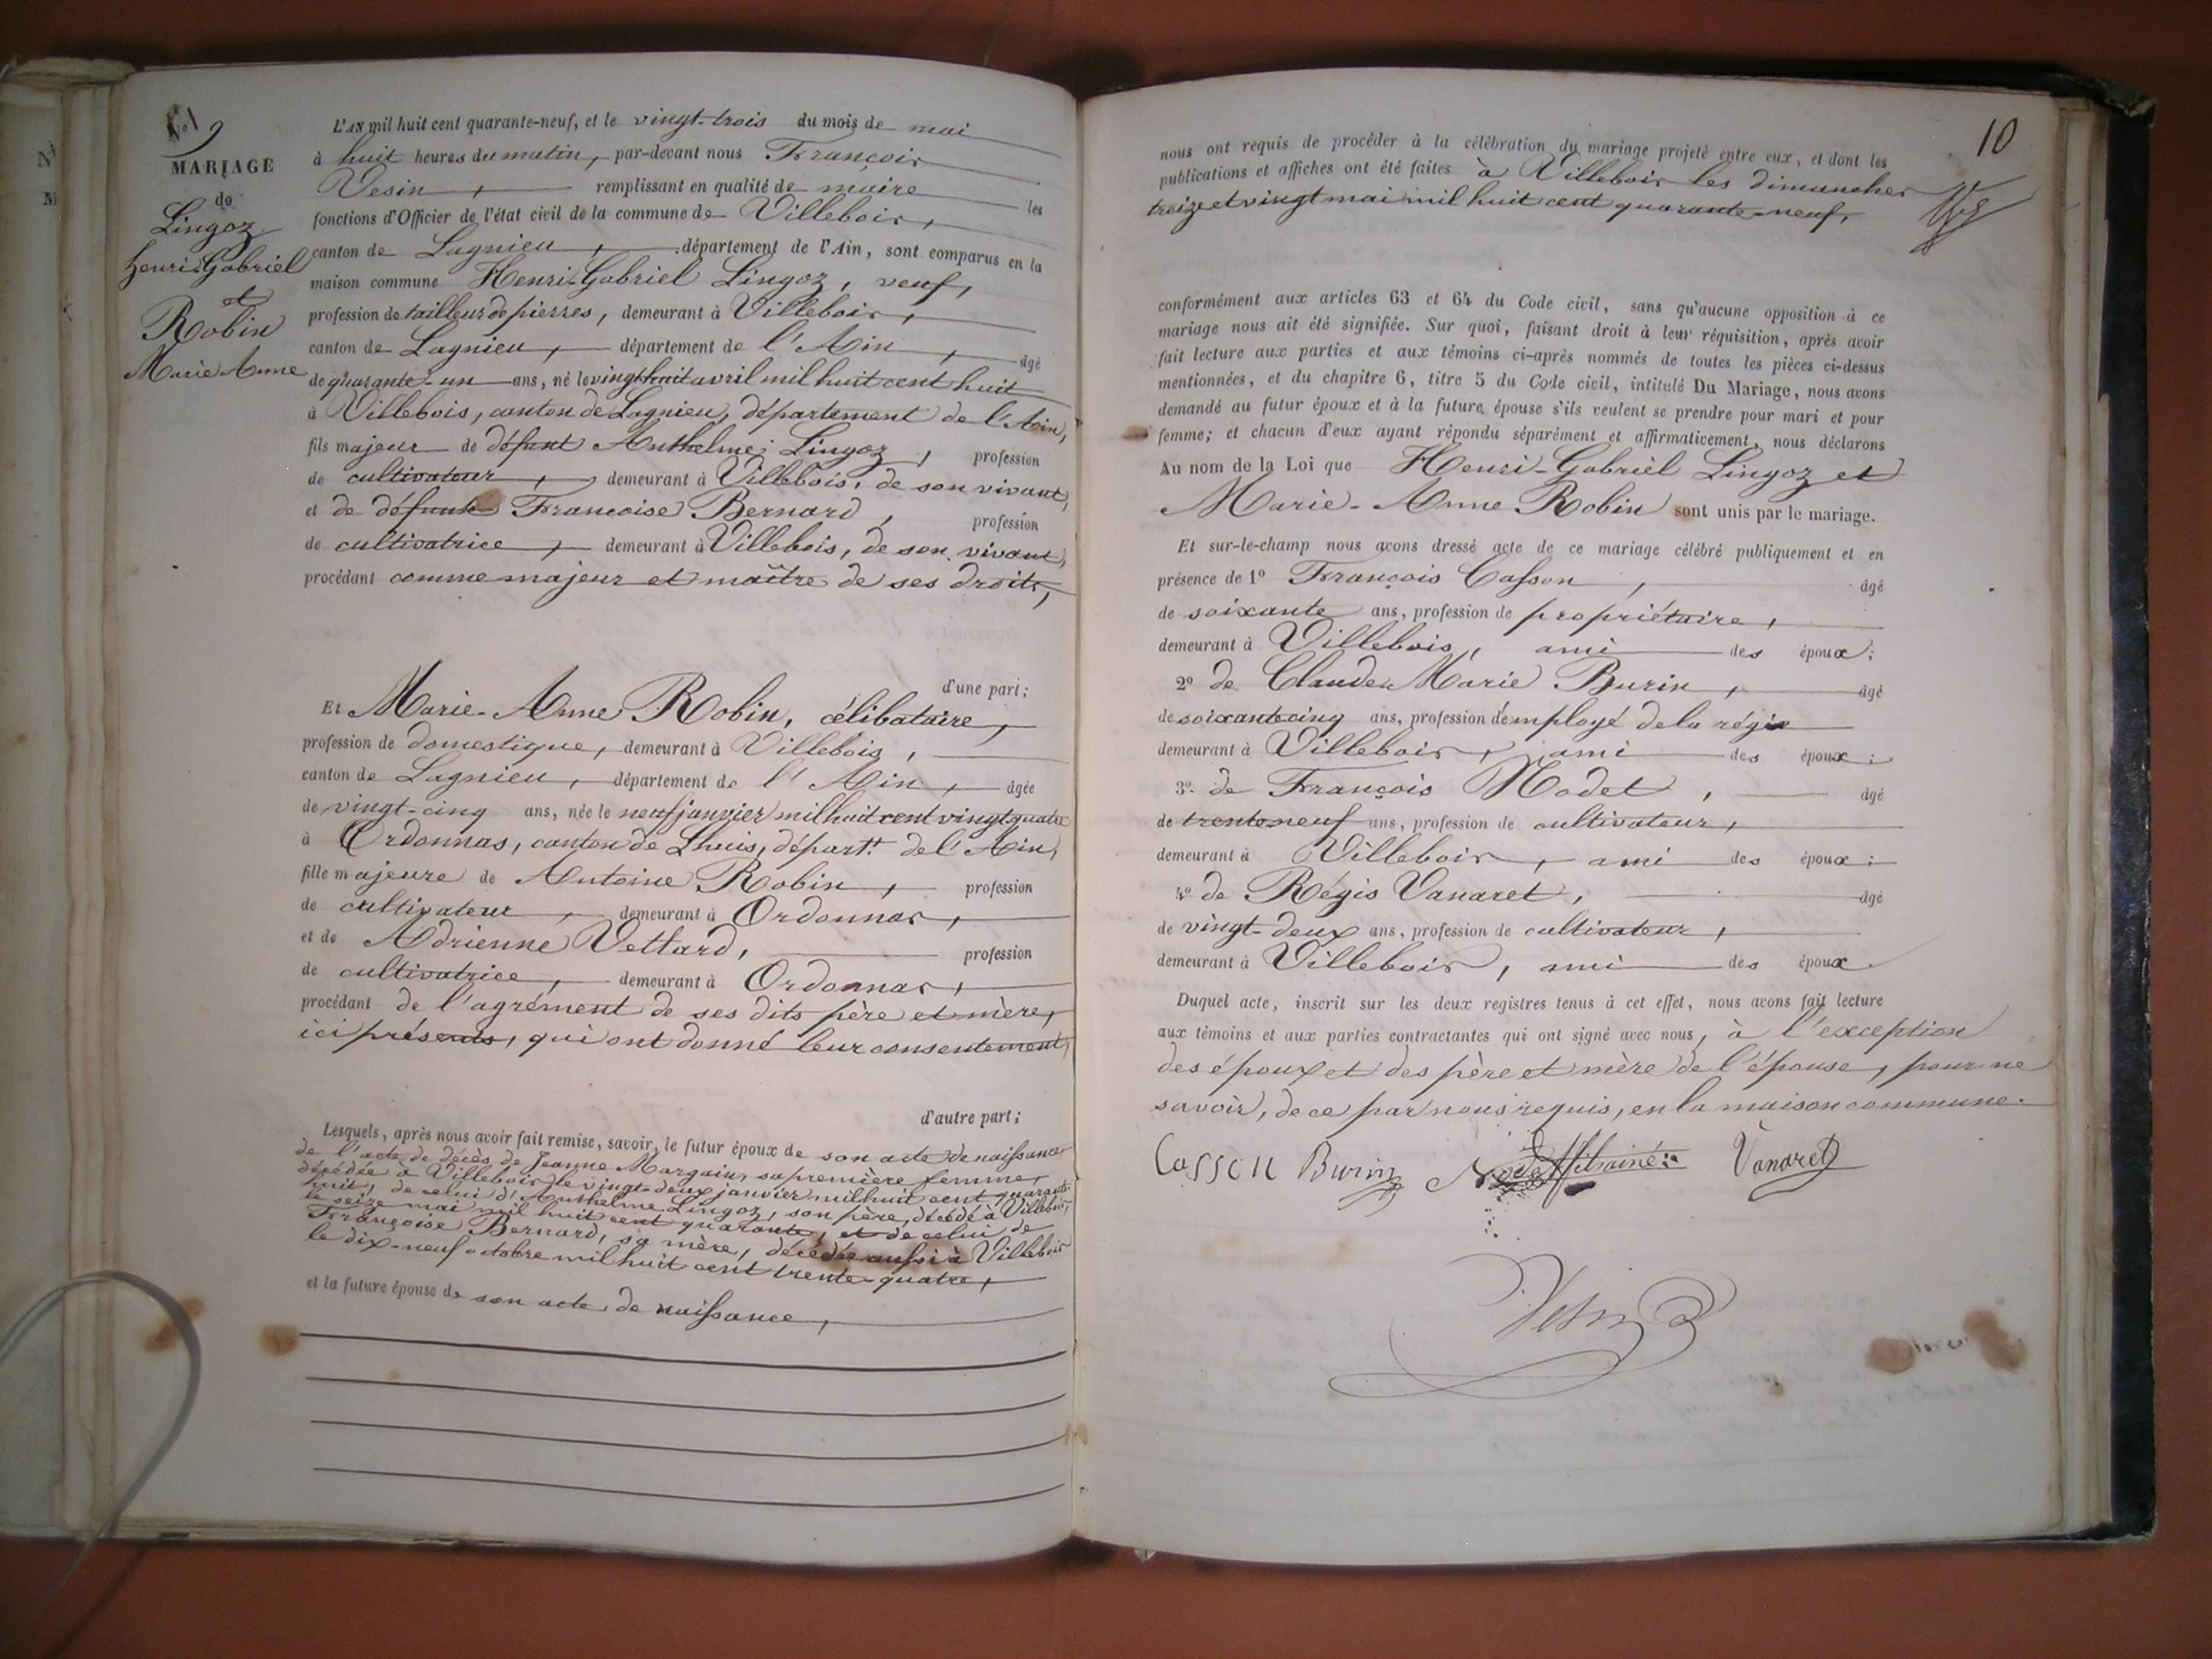 No 9
MARIAGE
de
Lingoz
henri-Gabriel
et
Robin
Marie Anne
L'AN mil huit cent quarante-neuf, et le vingt-trois du mois de mai
à huit heures du matin, par-devant nous François
Vesin, remplissant en qualité de maire les
fonctions d'Officier de l'état civil de la commune de Villebois,
canton de Lagnieu, département de l'Ain, sont comparus en la
maison commune Henri-Gabriel Lingoz, veuf,
profession de tailleur de pierres, demeurant à Villebois,
canton de Lagnieu, département de l'Ain, âgé
de quarante-un ans, né le vingt huit avril mil huit cent huit
à Villebois, canton de Lagnieu, département de l'Ain,
fils majeur de défunt Anthelme Lingoz, profession
de cultivateur, demeurant à Villebois, de son vivant,
et de défunte Françoise Bernard, profession
de cultivatrice, demeurant à Villebois, de son vivant,
procédant comme majeur et maître de ses droits,
d'une part;
Et Marie-Anne Robin, célibataire,
profession de domestique, demeurant à Villebois,
canton de Lagnieu, département de l'Ain, âgée
de vingt-cinq ans, née le neuf janvier mil huit cent vingt quatre
à Ordonnas, canton de Lhuis, départt. de l'Ain,
fille majeure de Antoine Robin, profession
de cultivateur, demeurant à Ordonnas,
et de Adrienne Vettard, profession
de cultivatrice, demeurant à Ordonnas,
procédant de l'agrément de ses dits père et mère,
ici présents, qui ont donné leur consentement,
d'autre part;
Lesquels, après nous avoir fait remise, savoir, le futur époux de son acte de naissance
de l'acte de décès de Jeanne Margain, sa première femme,
décédée à Villebois le vingt-deux janvier mil huit cent quarante
huit, de celui d'Anthelme Lingoz, son père, décédé à Villebois,
le seize mai mil huit cent quarante, et de celui de
Françoise Bernard, sa mère, décédée aussi à Villebois
le dix-neuf octobre mil huit cent trente-quatre,
et la future épouse de son acte de naissance,
10
nous ont requis de procéder à la célébration du mariage projeté entre eux, et dont les
publications et affiches ont été faites à Villebois les dimanches
treize et vingt mai mil huit cent quarante-neuf,
conformément aux articles 63 et 64 du Code civil, sans qu'aucune opposition à ce
mariage nous ait été signifiée. Sur quoi, faisant droit à leur réquisition, après avoir
fait lecture aux parties et aux témoins ci-après nommés de toutes les pièces ci-dessus
mentionnées, et du chapitre 6, titre 5 du Code civil, intitulé Du Mariage, nous avons
demandé au futur époux et à la future épouse s'ils veulent se prendre pour mari et pour
femme; et chacun d'eux ayant répondu séparément et affirmativement, nous déclarons
Au nom de la Loi que Henri-Gabriel Lingoz et
Marie-Anne Robin sont unis par le mariage.
Et sur-le-champ nous avons dressé acte de ce mariage célébré publiquement et en
présence de 1º François Casson, âgé
de soixante ans, profession de propriétaire,
demeurant à Villebois, ami des époux;
2º de Claude Marie Burin, âgé
de soixante cinq ans, profession d'employé de la régie
demeurant à Villebois, ami des époux;
3º de François Nodet, âgé
de trente-neuf ans, profession de cultivateur,
demeurant à Villebois, ami des époux;
4º de Régis Vanaret, âgé
de vingt-deux ans, profession de cultivateur,
demeurant à Villebois, ami des époux.
Duquel acte, inscrit sur les deux registres tenus à cet effet, nous avons fait lecture
aux témoins et aux parties contractantes qui ont signé avec nous, à l'exception
des époux et des père et mère de l'épouse, pour ne
savoir, de ce par nous requis, en la maison commune.
Casson Burin Vanaret
Vesin